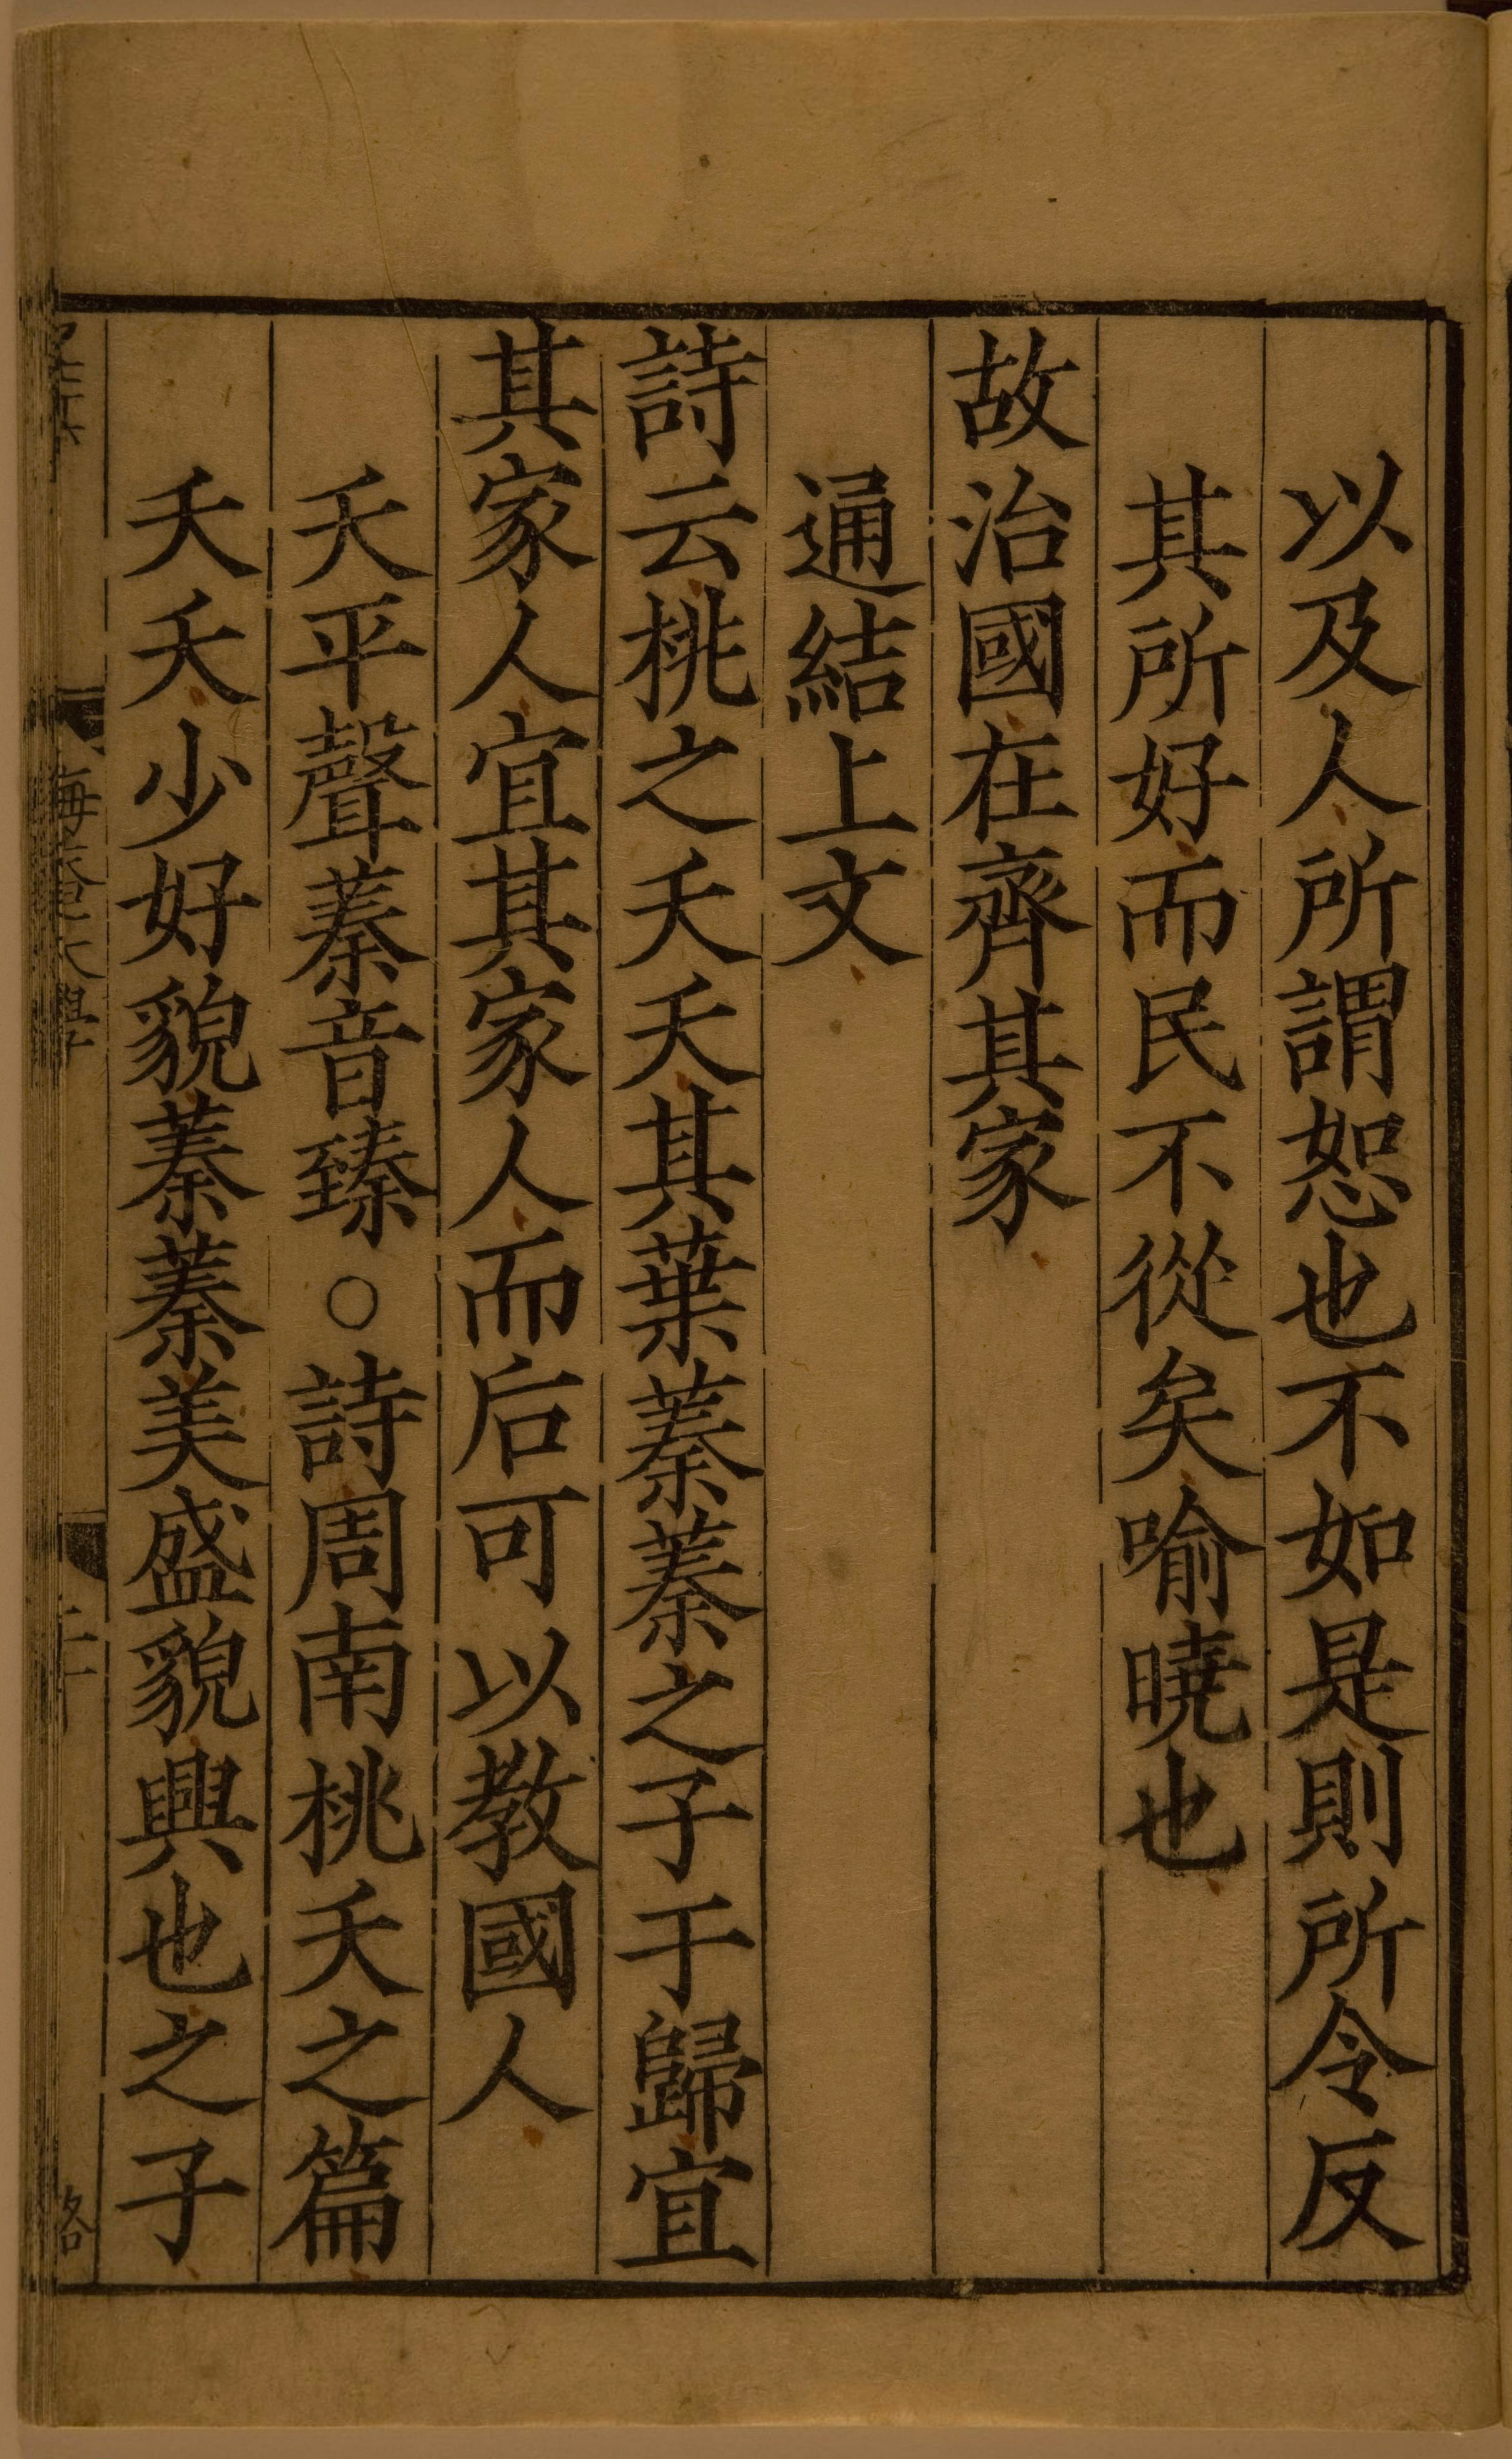 以及人所謂恕也不如是則所令反
其所好而民不從矣喻曉也
故治國在齊其家
通結上文
詩云桃之夭夭其葉蓁蓁之子于歸宜
其家人宜其家人而后可以教國人
夭平聲蓁音臻○詩周南桃夭之篇
夭夭少好貌蓁蓁美盛貌興也之子